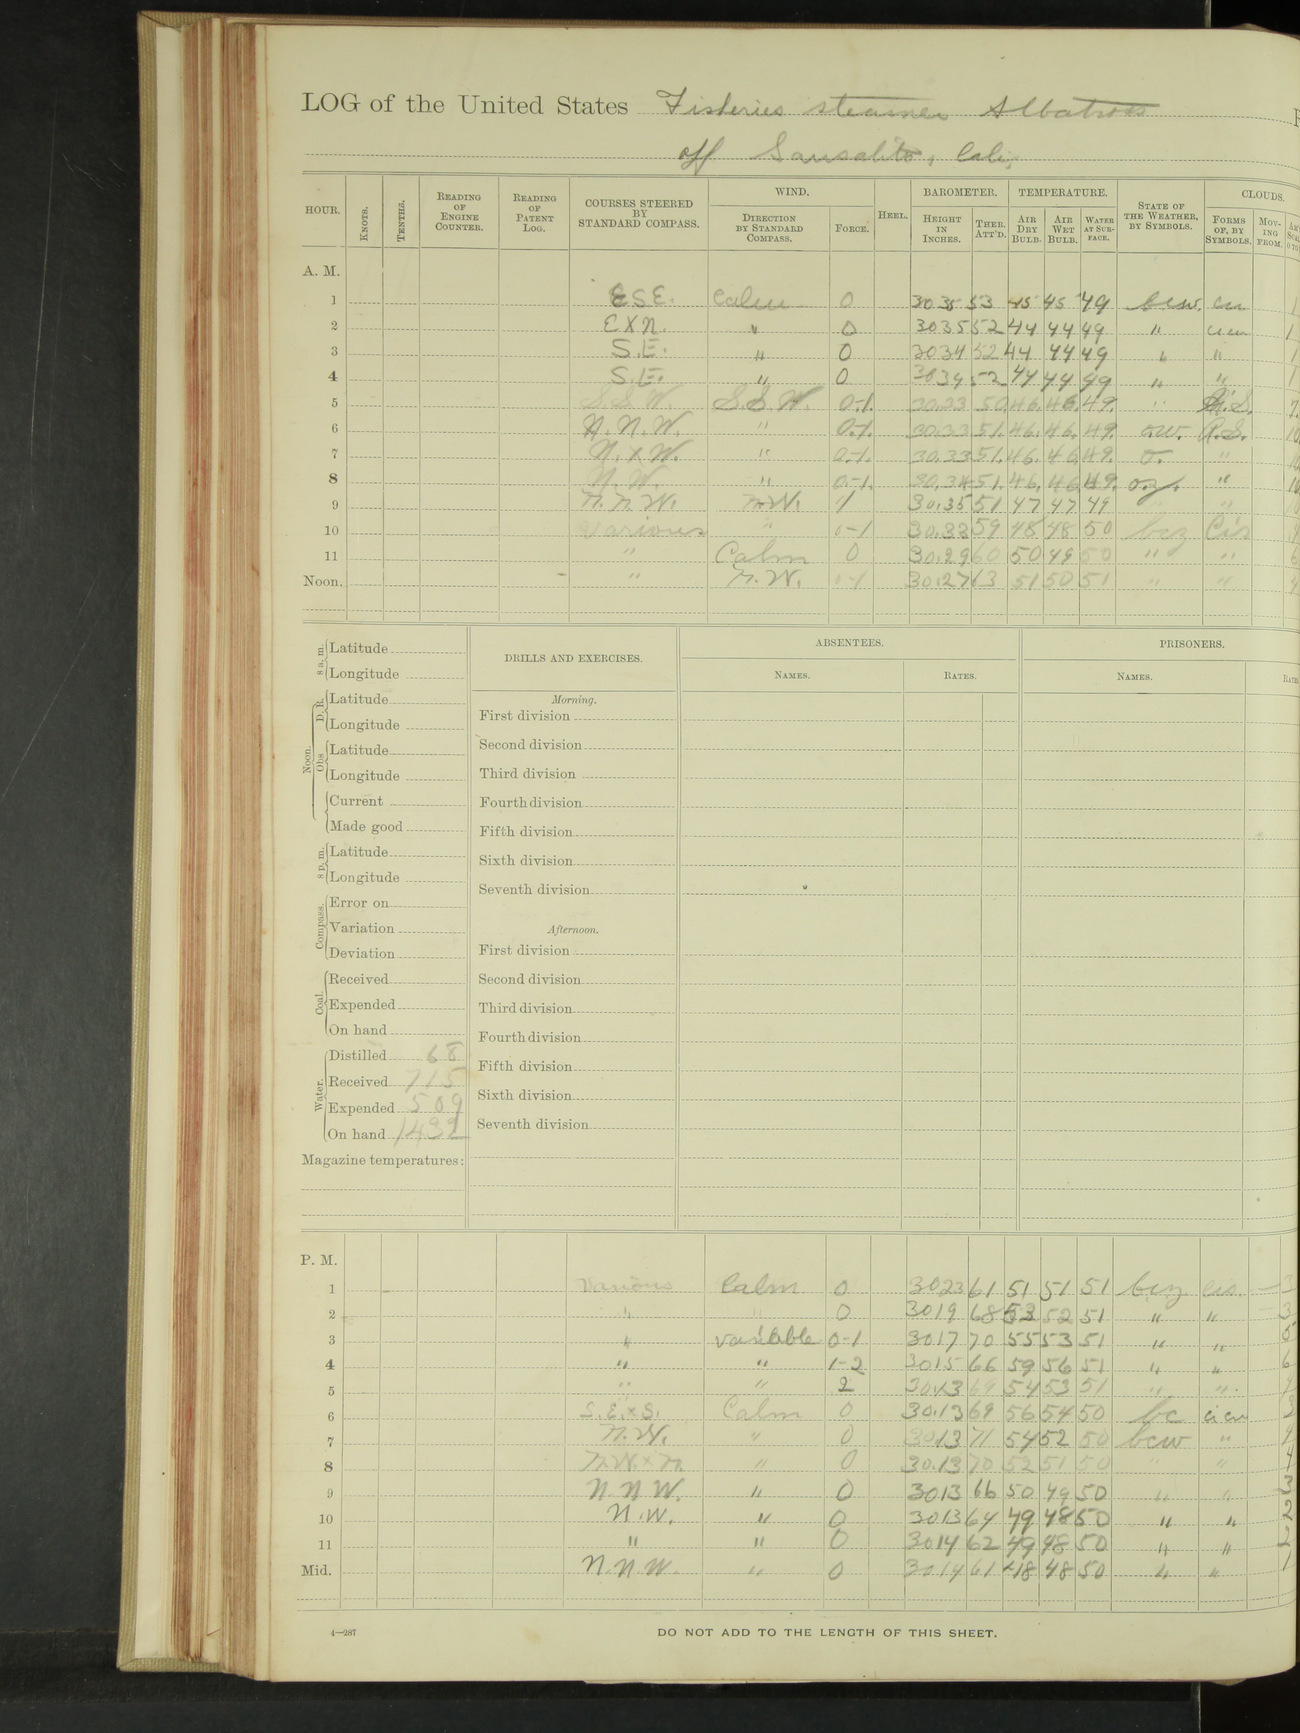 LOG of the United States Fisheries steamer Albatross
off Sausalito, Cali;
HOUR. KNOTS. TENTHS. READING OF ENGINE COUNTER. READING OF PATENT LOG. COURSES STEERED BY STANDARD COMPASS. WIND. DIRECTION BY STANDARD COMPASS. FORCE. HEEL. BAROMETER. HEIGHT IN INCHES. THER. ATT'D. TEMPERATURE. AIR DRY BULB. AIR WET BULB. WATER AT SURFACE. STATE OF THE WEATHER, BY SYMBOLS. CLOUDS. FORMS OF, BY SYMBOLS. MOVING FROM.
A. M.
1 ESE. Calm 0 30 35 53 45 45 49 bcw. cu 1
2 EXN. " 0 30 35 52 44 44 49 " cicu 1
3 S.E. " 0 30 34 52 44 44 49 " " 1
4 S.E. " 0 30 34 52 44 44 49 " " 1
5 S.S.W. S.S.W. 0-1. 30.33 50 46. 46. 49. " 7.
6 N.N.W. " 0-1. 30.33 51. 46. 46. 49. o.w. R.S. 10
7 N.x W. " 0-1. 30.33 51. 46. 46 49. o. " 10
8 N.W. " 0-1. 30.34 51. 46. 46 49. o.z. " 10
9 N.N.W. N.W. 1 30.35 51 47 47 49 " " 10
10 Various " 0-1 30.33 59 48 48 50 bcz Cis
11 " Calm 0 30.29 60 50 49 50 " " 6
Noon. " N.W. 0-1 30.27 63 51 50 51 " " 4
8 a.m. Latitude
Longitude
Noon. D. R. Latitude
Longitude
Obs Latitude
Longitude
Current
Made good
8 p.m. Latitude
Longitude
Compass. Error on
Variation
Deviation
Coal. Received
Expended
On hand
Water. Distilled 68
Received 715
Expended 509
On hand 1432
Magazine temperatures:
DRILLS AND EXERCISES.
Morning.
First division
Second division
Third division
Fourth division
Fifth division
Sixth division
Seventh division
Afternoon.
First division
Second division
Third division
Fourth division
Fifth division
Sixth division
Seventh division
ABSENTEES.
NAMES. RATES.
PRISONERS.
NAMES. RATES
P. M.
1 Various Calm 0 30 23 61 51 51 51 bcz cis. — 3
2 " " 0 30 19 68 53 52 51 " " — 3
3 " variable 0-1 30 17 70 55 53 51 " " 5
4 " " 1-2 30 15 66 59 56 51 " " 6
5 " " 2 30.13 69 54 53 51 " " 7
6 S.E.xS. Calm 0 30.13 69 56 54 50 bc cicu 3
7 N.W. " 0 30 13 71 54 52 50 bcw " 4
8 N.W.xN " 0 30.13 70 52 51 50 " " 4
9 N.N.W. " 0 30 13 66 50 49 50 " " 3
10 N.W. " 0 30 13 64 49 48 50 " " 2
11 " " 0 30 14 62 49 48 50 " " 2
Mid. N.N.W. " 0 30 14 61 48 48 50 " " 1
4—287
DO NOT ADD TO THE LENGTH OF THIS SHEET.